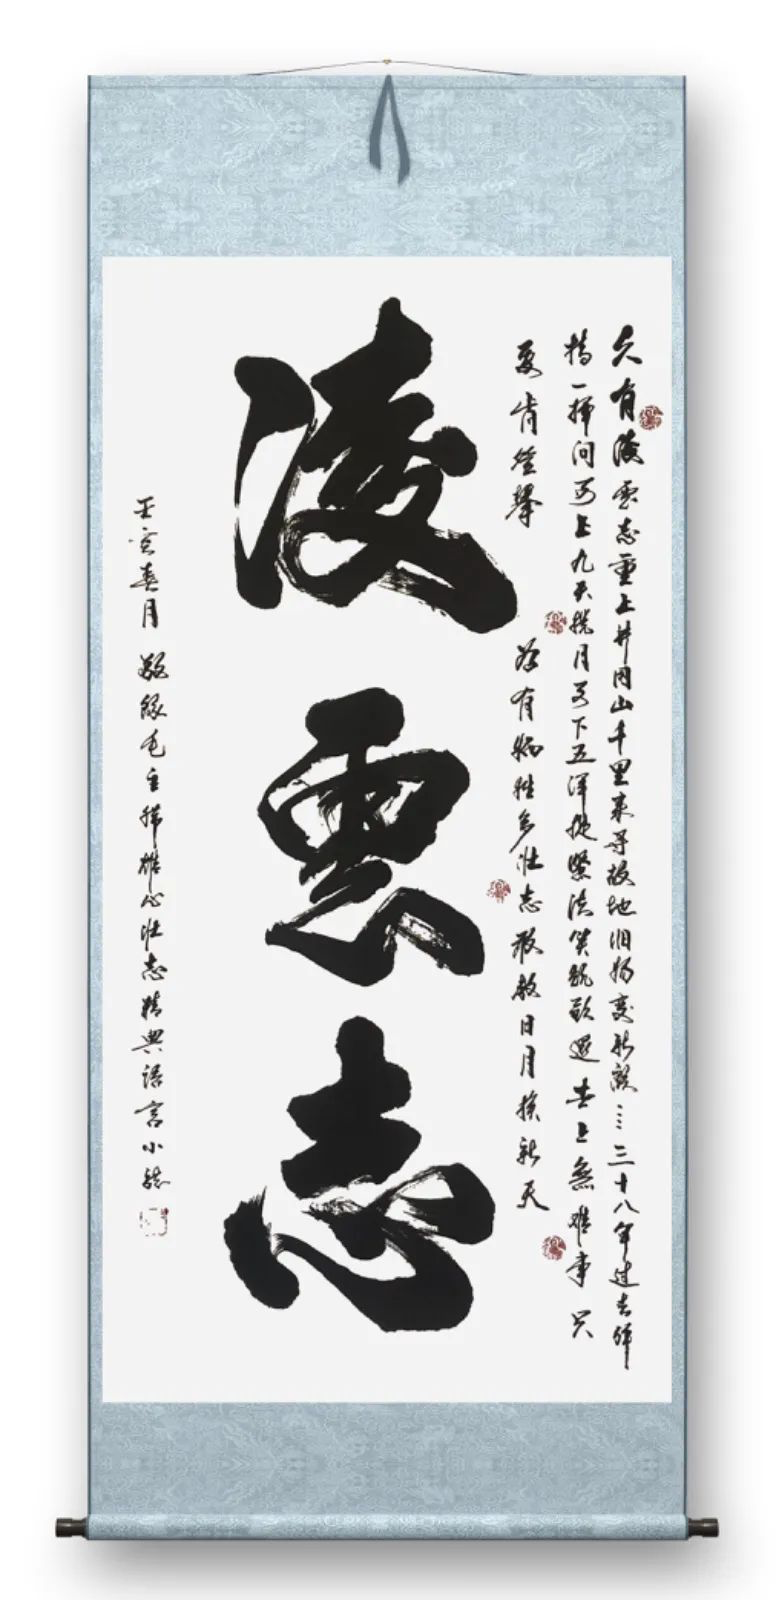 久有凌雲志重上井冈山千里来寻故地旧貌变新颜…三十八年过去弹
指一挥间可上九天揽月可下五洋捉鳖谈笑凯歌还世上無难事只
要肯登攀 为有牺牲多壮志敢教日月换新天
凌雲志
壬寅春月 敬録毛主席雄心壮志精典语言小